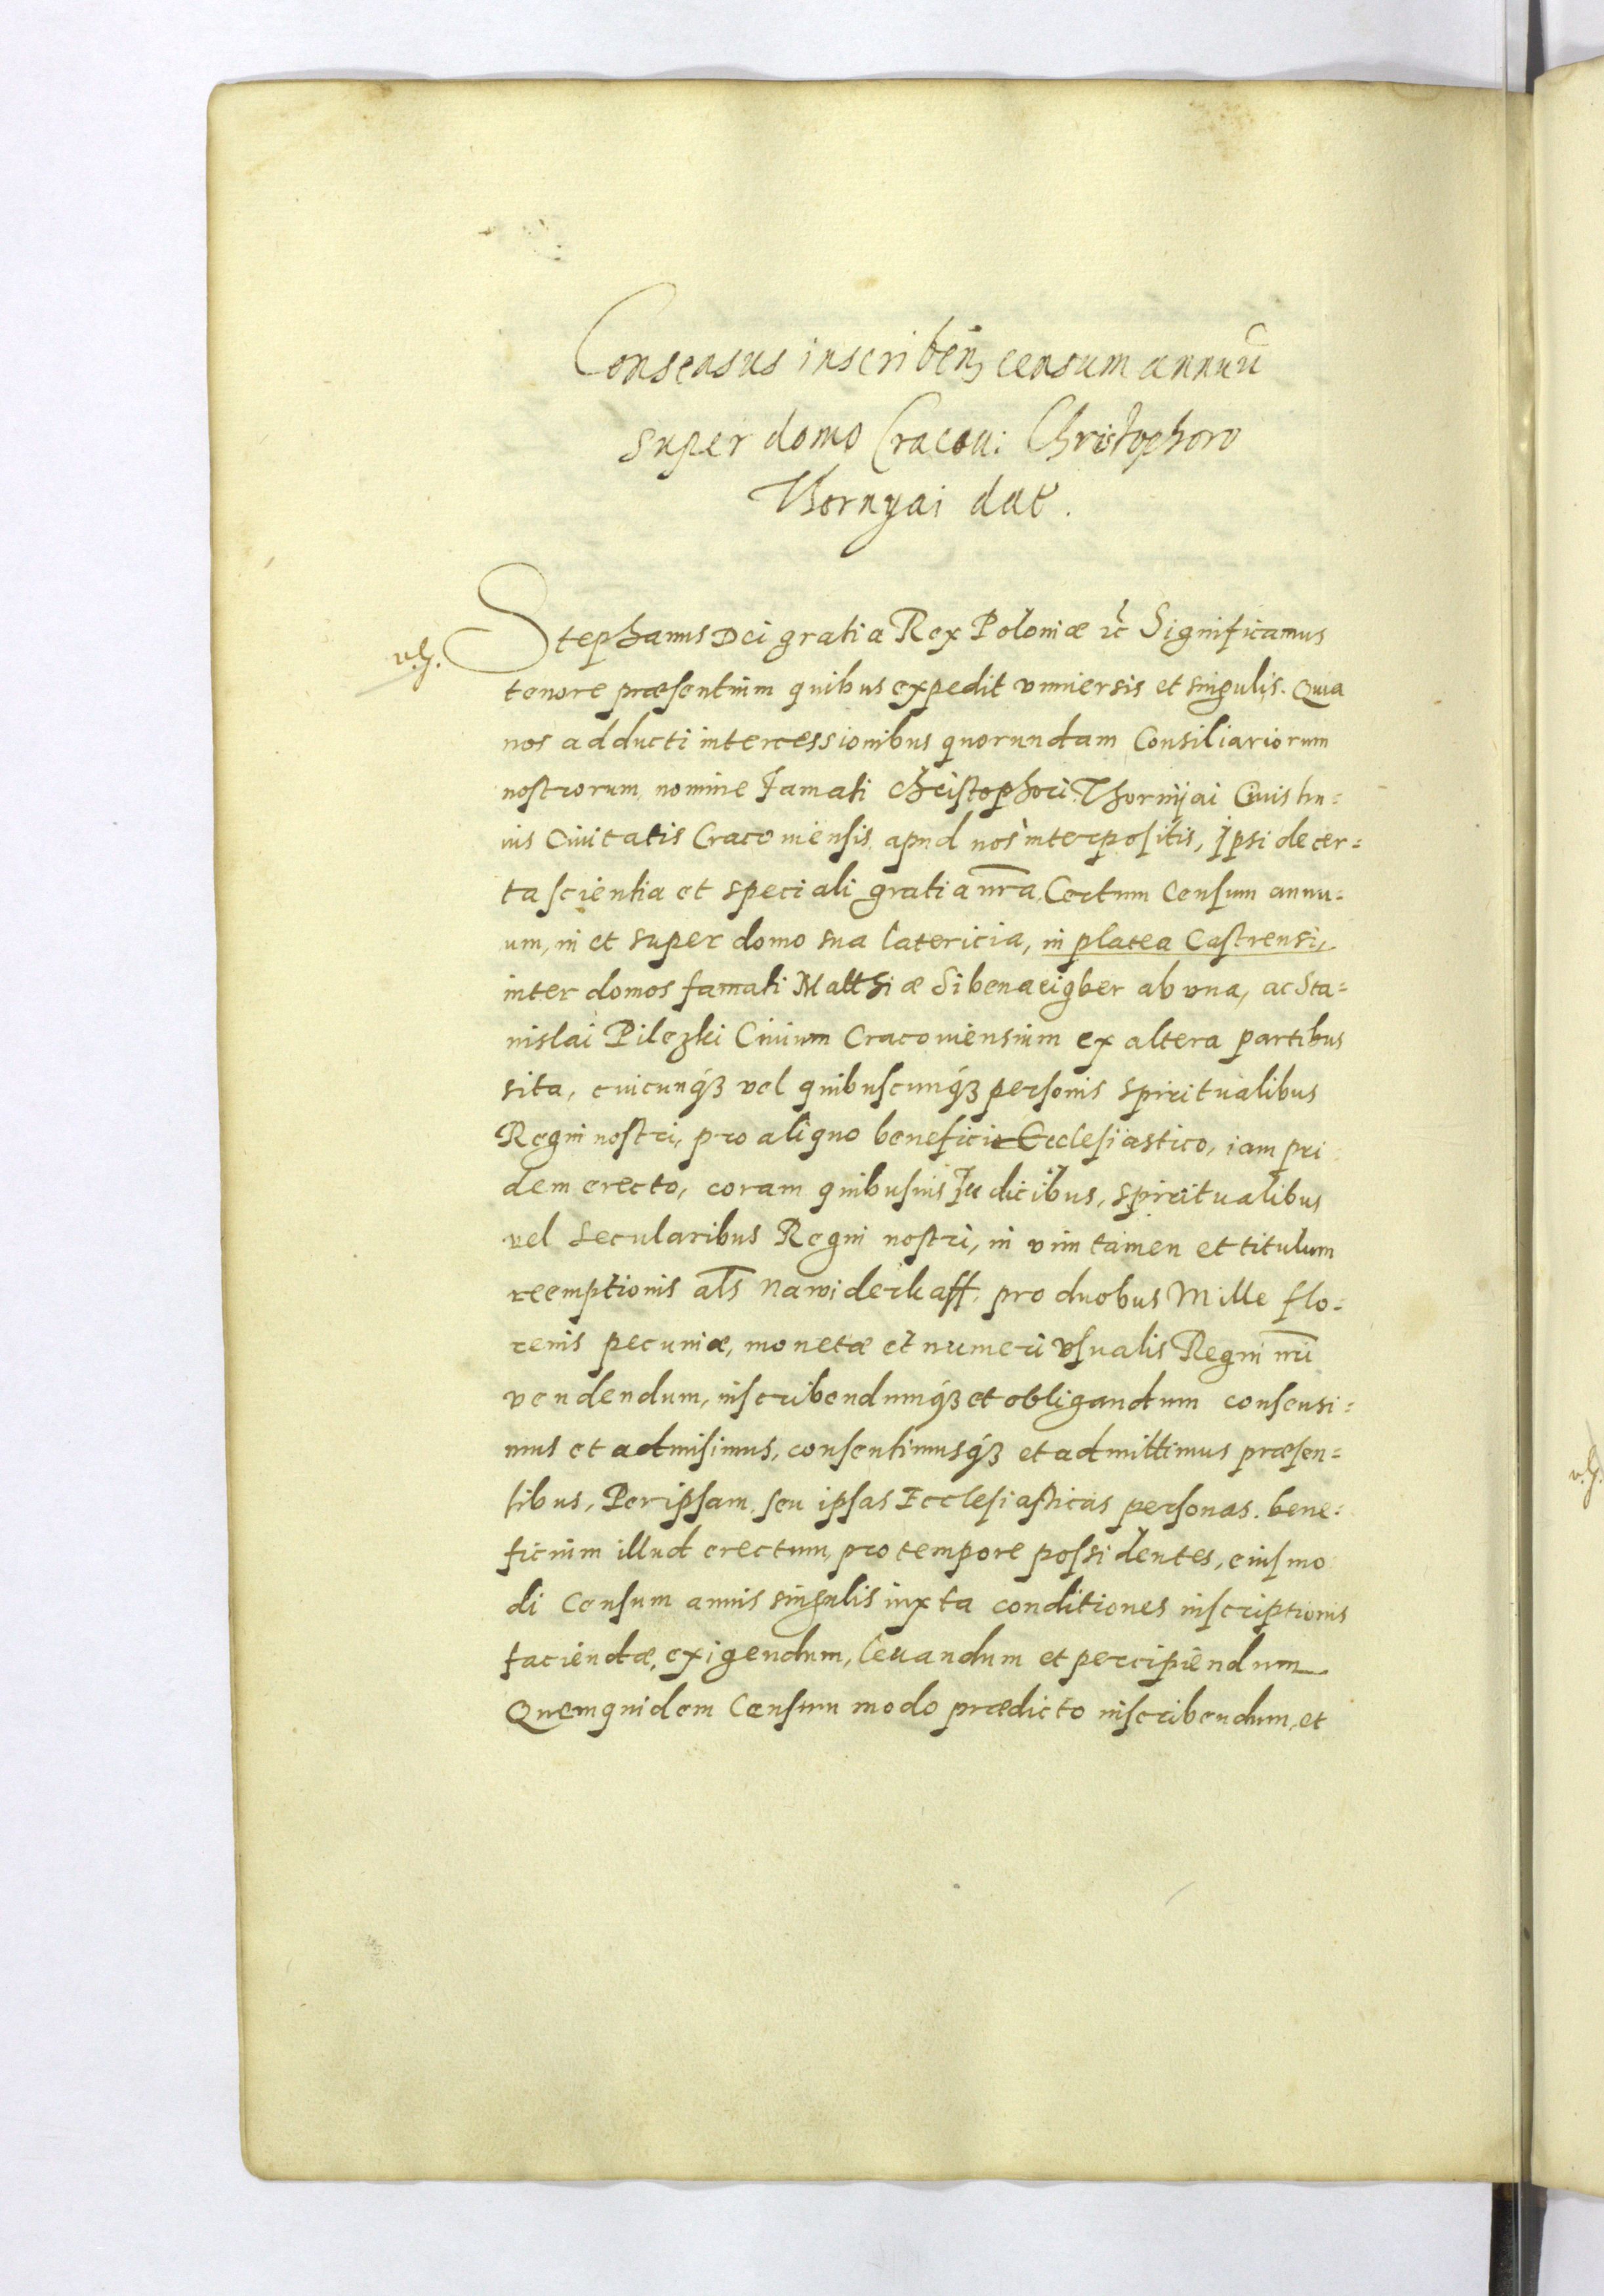 Consensus inscriben͛ censum annuū
super domo Cracou: Christophoro
Thornyai dat.
Stephanus Dei gratia Rex Poloniæ ꝛc̃ Significamus
tenore præsentium quibus expedit vniuersis et singulis. Quia
nos adducti intercessionibus quorundam Consiliariorum
nostrorum nomine famati Christophori Thornyai Ciuis hu=
ius Ciuitatis Cracouiensis apud nos interpositis, Ipsi de cer=
ta scientia et speciali gratia nr̃a, Certum Censum annu=
um, in et super domo sua latericia, in platea Castrensi,
inter domos famati Matthiæ Sibenaeigber ab vna, ac Sta=
nislai Pilezki Ciuium Cracouiensium ex altera partibus
sita, cuicunq́ꝫ vel quibuscunq́ꝫ personis spiritualibus
Regni nostri, pro aliquo beneficio Ecclesiastico, iam pri
dem erecto, coram quibusuis Iudicibus, spiritualibus
vel Secularibus Regni nostri, in vim tamen et titulum
reemptionis al̃s Nawiderkaff, pro duobus Mille flo=
renis pecuniæ, monetæ et numeri vsualis Regni nr̃i
vendendum, inscribendumq́ꝫ et obligandum consensi=
mus et admisimus, consentimusq́ꝫ et admittimus præsen=
tibus, Per ipsam seu ipsas Ecclesiasticas personas. bene=
ficium illud erectum, pro tempore possidentes, eiusmo
di Censum annis singulis iuxta conditiones inscriptionis
faciendæ, exigendum, leuandum et percipiendum
Quemquidem Censum modo prædicto inscribendum, et